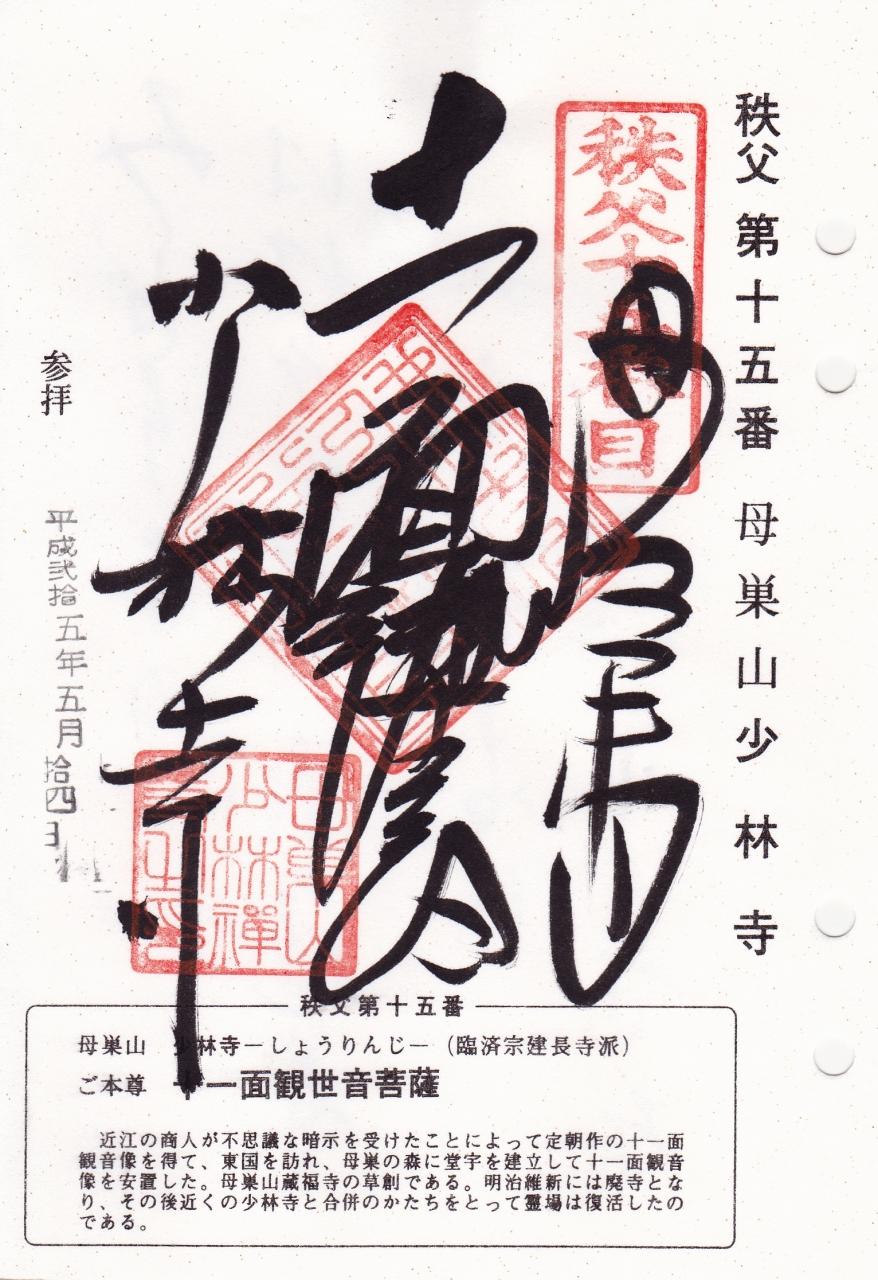 秩父 第十五番 母巣山少林寺
秩父十五番目
母巣山
十一面
少林寺
母巣山
少林禅
寺之印
参拝
平成弐拾五年五月拾四日
秩父第十五番
母巣山 少林寺－しょうりんじ－（臨済宗建長寺派）
ご本尊 十一面観世音菩薩
近江の商人が不思議な暗示を受けたことによって定朝作の十一面
観音像を得て、東国を訪れ、母巣の森に堂宇を建立して十一面観音
像を安置した。母巣山蔵福寺の草創である。明治維新には廃寺とな
り、その後近くの少林寺と合併のかたちをとって霊場は復活したの
である。